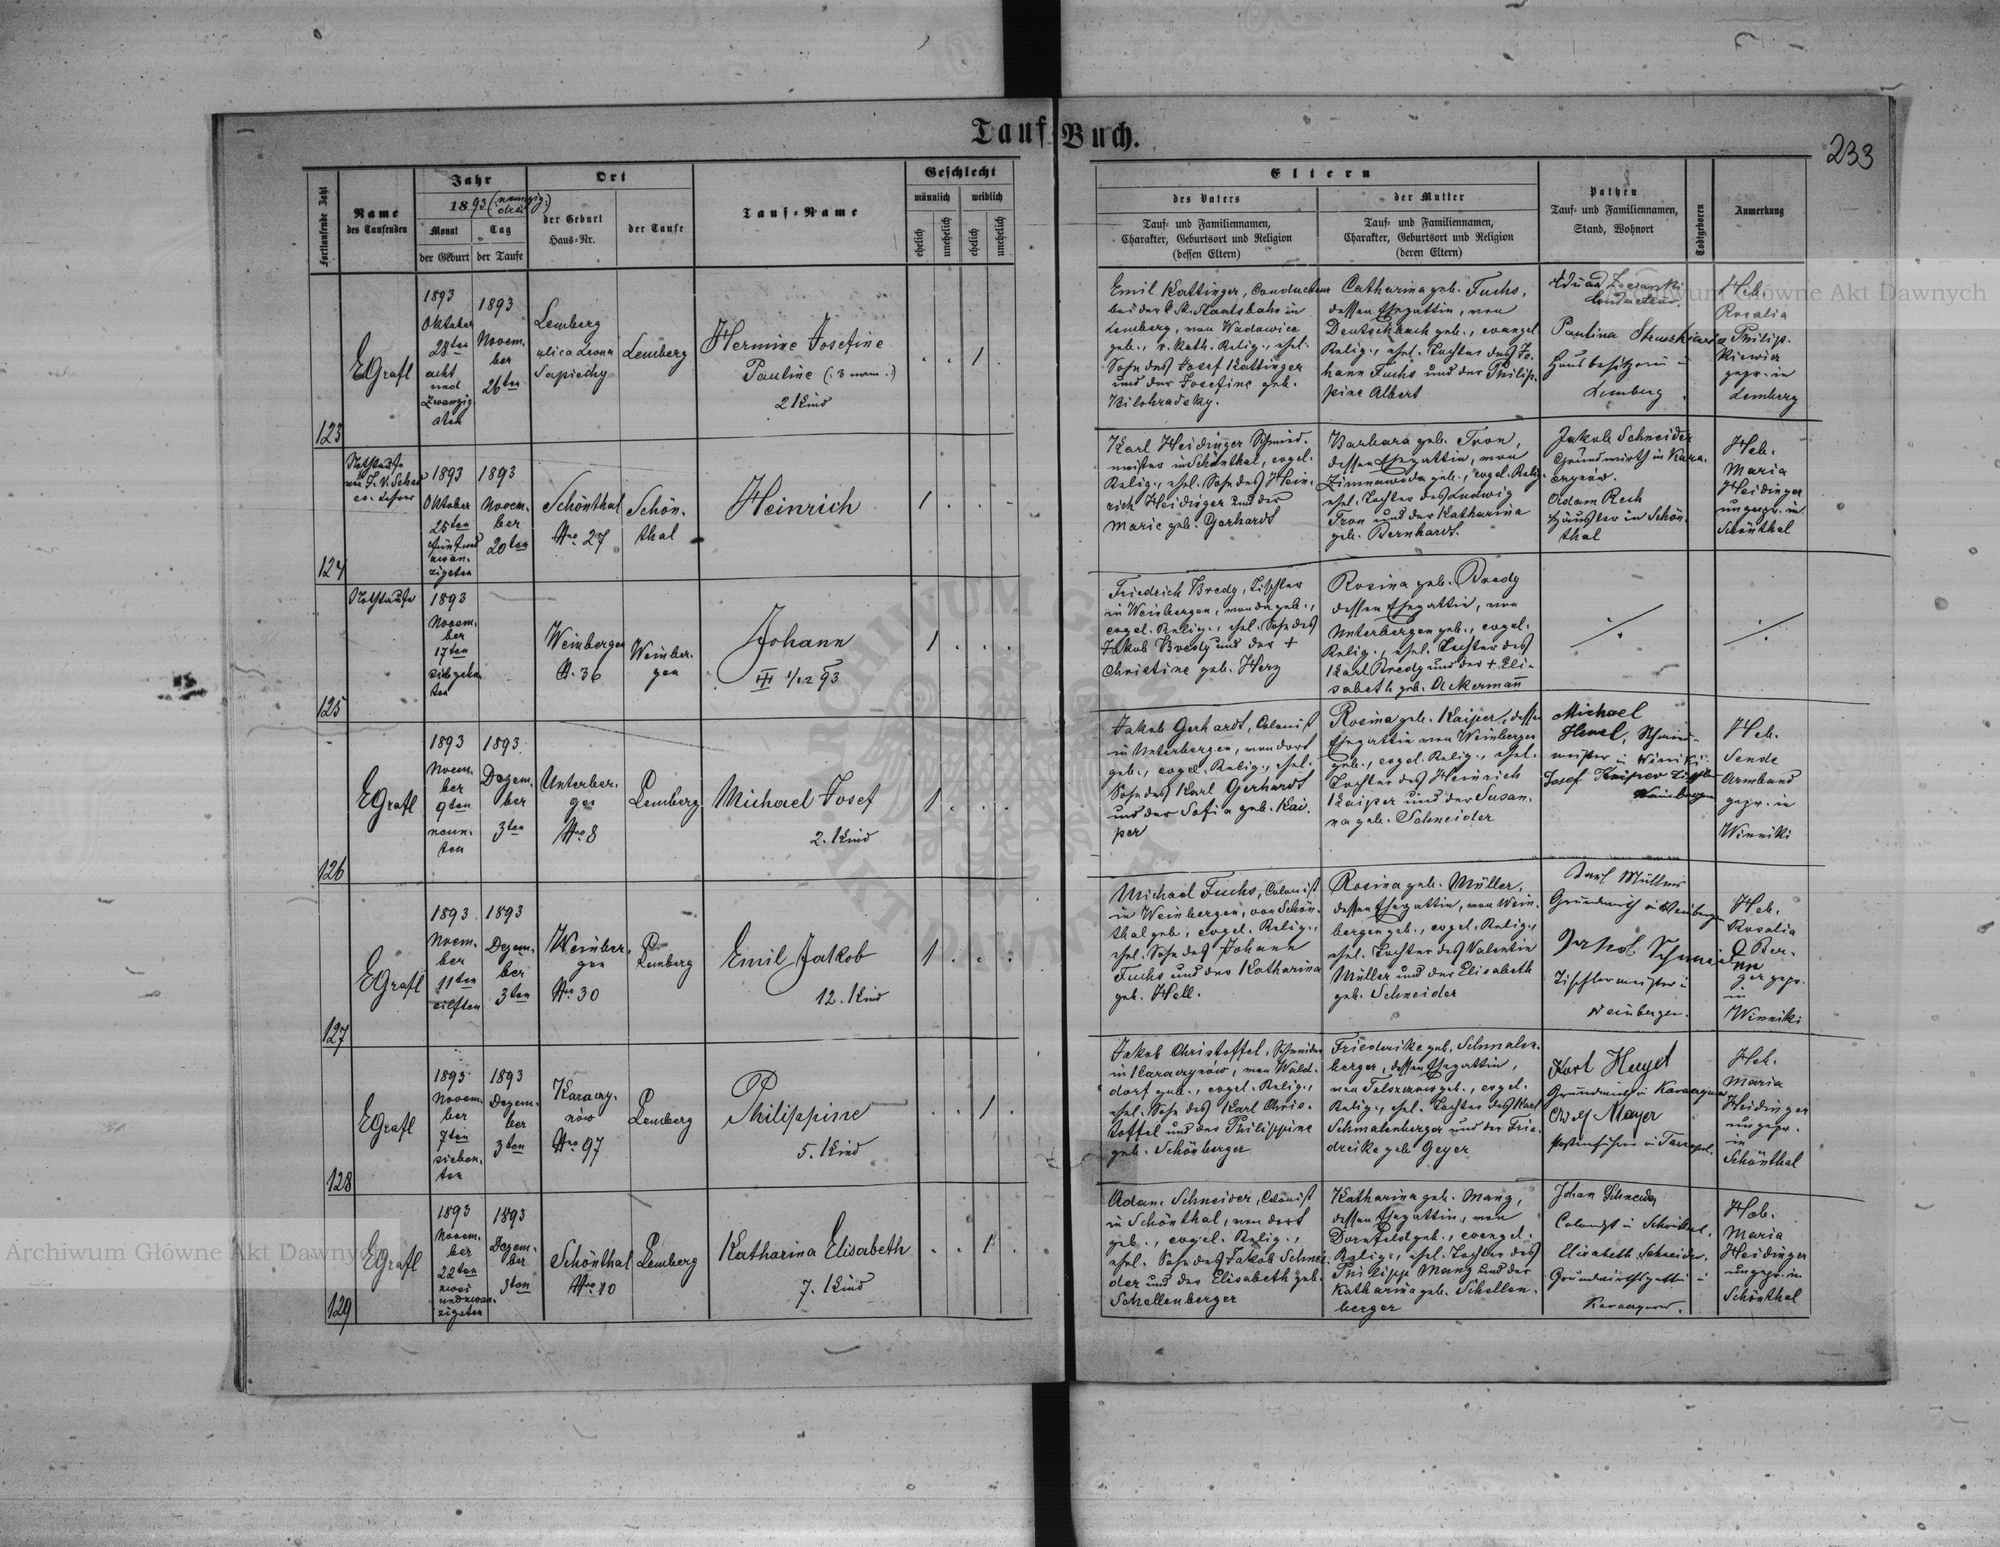 Tauf-Buch.
233
Fortlaufende Zahl
Name
des Taufenden
Jahr
1893
Monat
Tag
der Geburt
der Taufe
Ort
der Geburt
Haus-Nr.
der Taufe
Tauf-Name
Geschlecht
männlich
weiblich
ehelich
unehelich
ehelich
unehelich
Eltern
des Vaters
Tauf- und Familiennamen,
Charakter, Geburtsort und Religion
(dessen Eltern)
der Mutter
Tauf- und Familiennamen,
Charakter, Geburtsort und Religion
(deren Eltern)
Pathen
Tauf- und Familiennamen,
Stand, Wohnort
Todtgeboren
Anmerkung
123
EGrafl
1893
Oktober
28ten
acht
und
Zwanzig
sten
1893
Novem-
ber
26ten
Lemberg
ulica Leona
Sapiechy
Lemberg
Hermine Josefine
Pauline
2 Kind
Emil Kattinger, Conducteur
bei der k. k. Staatsbahn in
Lemberg, von Wadowice
geb., r. kath. Relig., ehel.
Sohn des Josef Kattinger
und der Josefine geb.
Bilohradsky.
Catharina geb. Fuchs,
dessen Ehegattin, von
Deutschbach geb., evangel
Relig., ehel. Tochter des Jo-
hann Fuchs und der Philip-
pine Albert
Conducteur
Paulina
Hausbesitzerin
Lemberg
Heb.
Rosalia
Philip-
kiewicz
gepr. in
Lemberg
124
Nothtaufe
1893
Oktober
25ten
fünfund
zwan-
zigsten
1893
Novem-
ber
20ten
Schönthal
Nro 27
Schön-
thal
Heinrich
Karl Heidinger Schmied-
meister in Schönthal, evgel.
Relig., ehel. Sohn des Hein-
rich Heidinger und der
Marie geb. Gerhardt
Barbara geb. Tron,
dessen Ehegattin, von
Zimnawoda geb., evgel. Relig.
ehel. Tochter des Ludwig
Tron und der Katharina
geb. Bernhardt.
Jakob Schneider
Grundwirth in Kara-
czynow.
Adam Rech
Häusler in Schön-
thal
Heb.
Maria
Heidinger
ungepr. in
Schönthal
125
Nothtaufe
1893
Novem-
ber
17ten
siebzehn
ten
Weinbergen
N. 36
Weinber-
gen
Johann
1/12 93
Friedrich Bredy, Tischler
in Weinbergen, von da geb.,
evgel. Relig., ehel. Sohn des
Jakob Bredy und der +
Christine geb. Herz
Rosina geb. Bredy
dessen Ehegattin, von
Unterbergen geb., evgel.
Relig., ehel. Tochter des
Karl Bredy und der + Eli-
sabeth geb. Ackermann
126
EGrafl
1893
Novem-
ber
9ten
neun-
ten
1893
Dezem-
ber
3ten
Unterber-
gen
Nro 8
Lemberg
Michael Josef
2. Kind
Jakob Gerhardt, Colonist
in Unterbergen, von dort
geb., evgel. Relig., ehel.
Sohn des Karl Gerhardt
und der Sofia geb. Kai-
per
Rosina geb. Kaiper, dessen
Ehegattin von Weinbergen
geb., evgel. Relig., ehel.
Tochter des Heinrich
Kaiper und der Susan-
na geb. Schneider
Michael
Schmied-
meister in Winniki
Josef Kaiper
Weinbergen
Heb.
Sende
Armband
gepr. in
Winniki
127
EGrafl
1893
Novem-
ber
11ten
eilften
1893
Dezem-
ber
3ten
Weinber-
gen
Nro 30
Lemberg
Emil Jakob
12. Kind
Michael Fuchs, Colonist
in Weinbergen, von Schön-
thal geb., evgel. Relig.,
ehel. Sohn des Johann
Fuchs und der Katharina
geb. Hell.
Rosina geb. Müller,
dessen Ehegattin, von Wein-
bergen geb., evgel. Relig.,
ehel. Tochter des Valentin
Müller und der Elisabeth
geb. Schneider
Karl Müller
Grundwirth in Weinbergen
Jakob
Tischlermeister in
Weinbergen.
Heb.
Rosalia
gepr.
in
Winniki
128
EGrafl
1893
Novem-
ber
7ten
sieben-
ten
1893
Dezem-
ber
3ten
Karaczy-
nów
Nro 97
Lemberg
Philippine
5. Kind
Jakob Christoffel, Schneider
in Karaczynów, von Wald-
dorf geb., evgel. Relig.,
ehel. Sohn des Karl Chris-
toffel und der Philippine
geb. Schönberger
Friederike geb. Schmalen-
berger, dessen Ehegattin,
evgel.
Relig., ehel. Tochter des Karl
Schmalenberger und der Frie-
dreike geb Geyer
Karl
Grundwirth in Karaczynow
Mayer
Heb.
Maria
Heidinger
ungepr.
in
Schönthal
129
EGrafl
1893
Novem-
ber
22ten
zwei
undzwan-
zigsten
1893
Dezem-
ber
3ten
Schönthal
Nro 10
Lemberg
Katharina Elisabeth
7. Kind
Adam Schneider, Colonist
in Schönthal, von dort
geb., evgel. Relig.,
ehel. Sohn des Jakob Schnei-
der und der Elisabeth geb.
Schellenberger
Katharina geb. Mang,
dessen Ehegattin, von
Dornfeld geb., evangel.
Relig., ehel. Tochter des
Philipp Mang und der
Katharina geb. Schellen-
berger
Johan Schneider
Colonist in Schönthal,
Elisabeth Schneider,
Grundwirthsgattin in
Karaczynow.
Heb.
Maria
Heidinger
ungepr. in
Schönthal
Archiwum Główne Akt Dawnych
Archiwum Główne Akt Dawnych